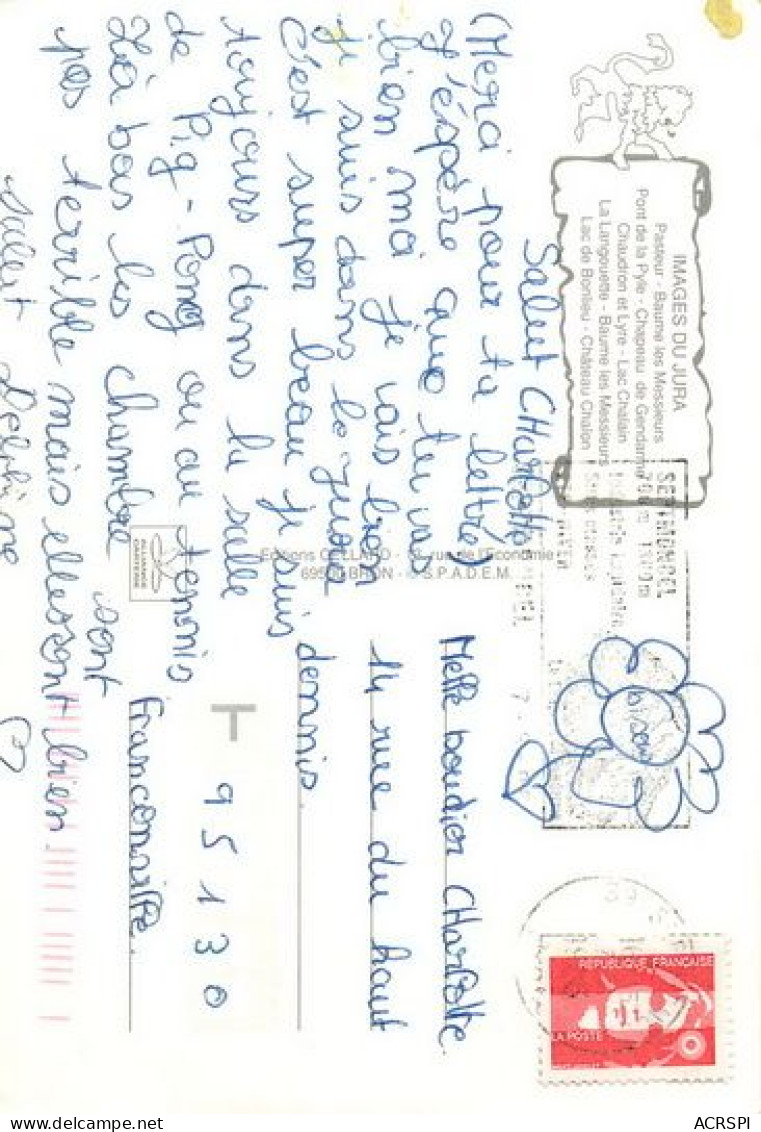 IMAGES DU JURA
Pasteur - Baume les Messieurs
Pont de la Pyle - Chapeau de Gendarme
Chaudron et Lyre - Lac Chalain
La Langouette - Baume les Messieurs
Lac de Bonlieu - Château Chalon
Salut CHarlotte
(Merci pour ta lettre)
J'éspère que tu vas
bien moi je vais bien
Je suis dans le Jura
c'est super beau je suis
toujours dans la salle
de Pig-Pong ou au tennis
Là bas les chambre sont
pas terrible mais elles sont bien
salut Delphine
Editions CELLARD - rue de l'Economie
69500 BRON - © S.P.A.D.E.M.
ALLIANCE
CARTERIE
SEPTMONCEL
bisou
REPUBLIQUE FRANÇAISE
LA POSTE
Melle boudier CHarlotte
14 rue du haut
dennis.
95130
Franconville.
ACRSPI